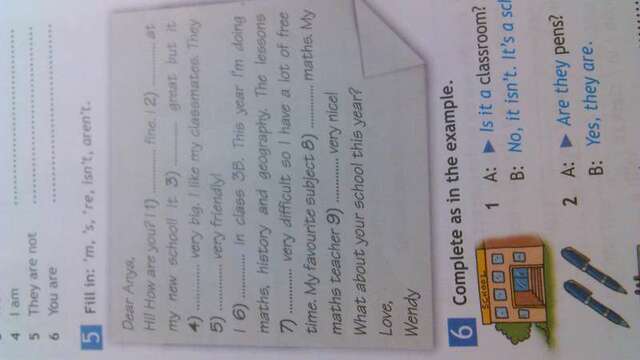 4 I am ..............................
5 They are not ..............................
6 You are ..............................
5 Fill in: 'm, 's, 're, isn't, aren't.
Dear Anya,
Hi! How are you? I 1) ............ fine. I 2) ............ at
my new school! It 3) ............ great but it
4) ............ very big. I like my classmates. They
5) ............ very friendly!
I 6) ............ in class 3B. This year I'm doing
maths, history and geography. The lessons
7) ............ very difficult so I have a lot of free
time. My favourite subject 8) ............ maths. My
maths teacher 9) ............ very nice!
What about your school this year?
Love,
Wendy
6 Complete as in the example.
SCHOOL
1 A: ► Is it a classroom?
B: No, it isn't. It's a sch
2 A: ► Are they pens?
B: Yes, they are.